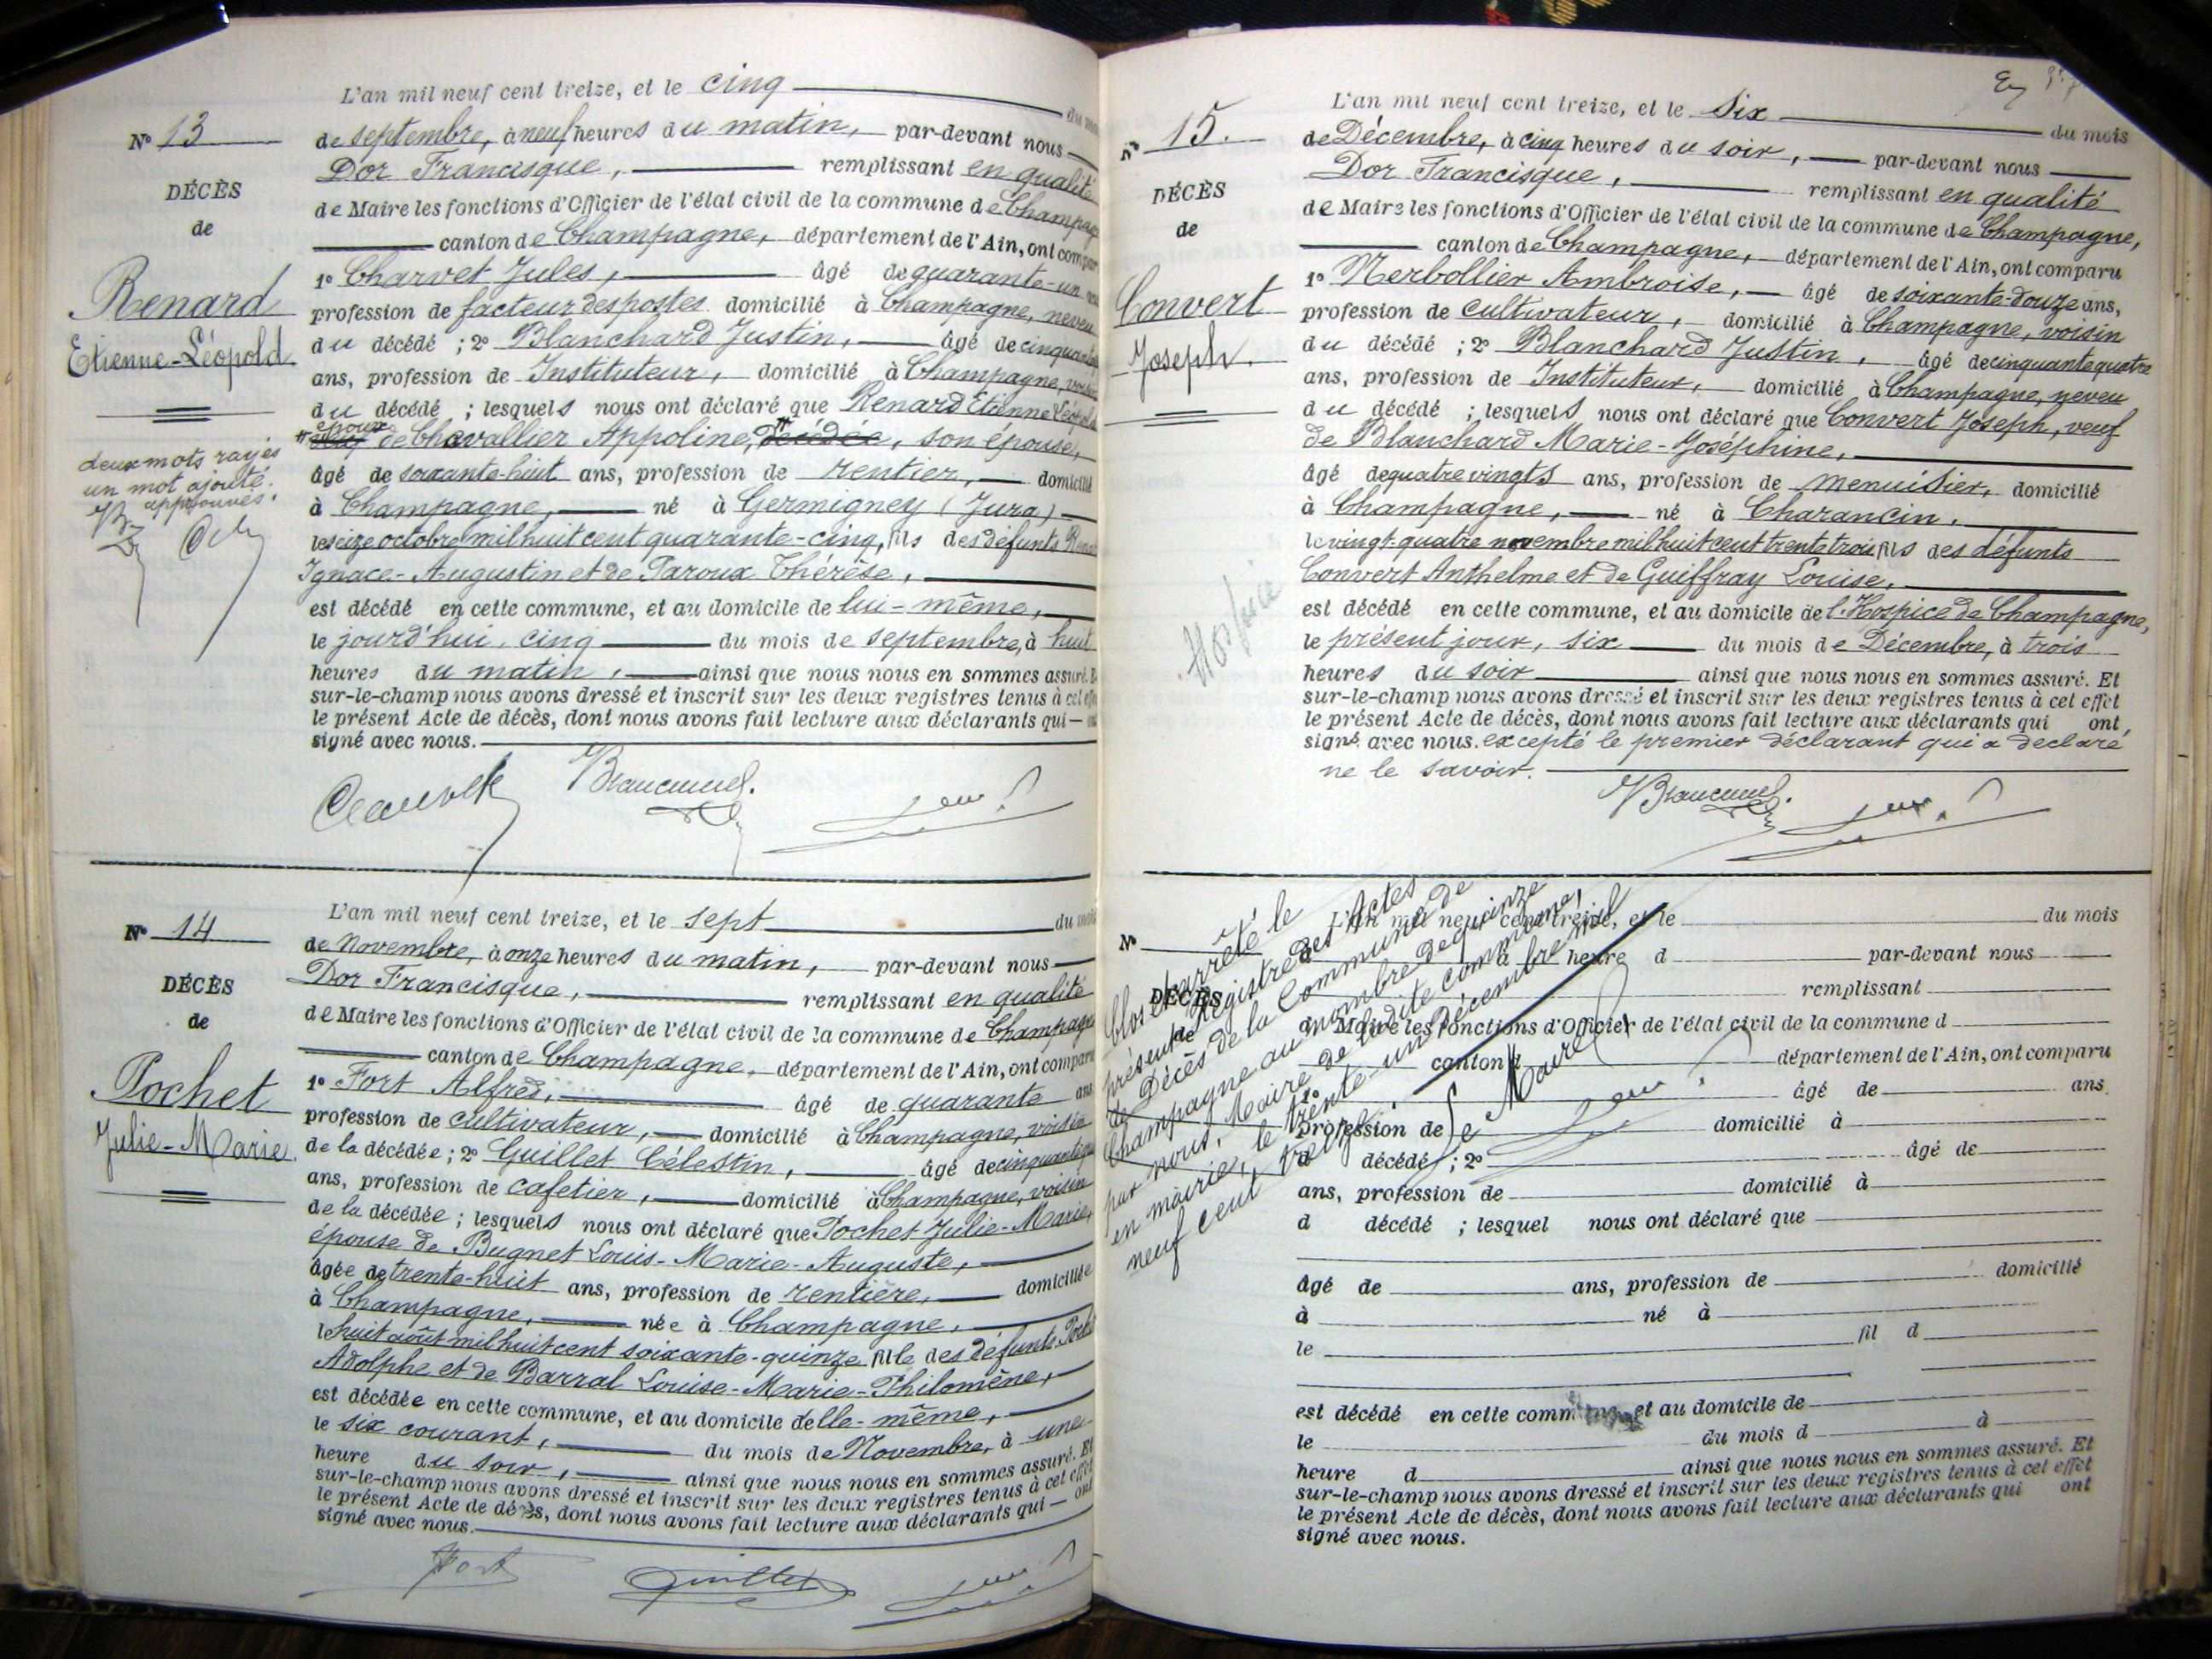 L'an mil neuf cent treize, et le cinq
N° 13
de septembre, à neuf heures du matin, par-devant nous
Dor Francisque, remplissant en qualité
DÉCÈS
de Maire les fonctions d'Officier de l'état civil de la commune de
de
canton de Champagne, département de l'Ain, ont
1° Charvet Jules, âgé de quarante-un
Renard
profession de facteur des postes domicilié à Champagne, neveu
Etienne-Léopold
du décédé ; 2° Blanchard Justin, âgé de
ans, profession de Instituteur, domicilié à Champagne,
du décédé ; lesquels nous ont déclaré que Renard Etienne
époux
de Chavallier Appoline, décédée, son épouse,
deux mots rayés
un mot ajouté.
approuvés.
âgé de soixante-huit ans, profession de rentier, domicilié
à Champagne, né à Germigney (Jura)
le seize octobre mil huit cent quarante-cinq, fils des défunts
Ignace-Augustin et de Paroux Thérèse,
est décédé en cette commune, et au domicile de lui-même,
le jourd'hui, cinq du mois de septembre, à huit
heures du matin, ainsi que nous nous en sommes assuré.
sur-le-champ nous avons dressé et inscrit sur les deux registres tenus à cet
le présent Acte de décès, dont nous avons fait lecture aux déclarants qui
signé avec nous.
L'an mil neuf cent treize, et le sept du
N° 14
de Novembre, à onze heures du matin, par-devant nous
Dor Francisque, remplissant en qualité
DÉCÈS
de Maire les fonctions d'Officier de l'état civil de la commune de
de
canton de Champagne, département de l'Ain, ont comparu
1° Fort Alfred, âgé de quarante ans
Pochet
profession de cultivateur, domicilié à Champagne, voisin
Julie-Marie.
de la décédée ; 2° Guillet Célestin, âgé de
ans, profession de cafetier, domicilié à Champagne, voisin
de la décédée ; lesquels nous ont déclaré que Pochet Julie-Marie,
épouse de Bugnet Louis-Marie-Auguste,
âgée de trente-huit ans, profession de rentière, domiciliée
à Champagne, née à Champagne,
le huit août mil huit cent soixante-quinze fille des défunts
Adolphe et de Barral Louise-Marie-Philomène,
est décédée en cette commune, et au domicile d'elle-même,
le six courant, du mois de Novembre, à une
heure du soir, ainsi que nous nous en sommes assuré. Et
sur-le-champ nous avons dressé et inscrit sur les deux registres tenus à cet effet
le présent Acte de décès, dont nous avons fait lecture aux déclarants qui ont
signé avec nous.
Fort Guillet
L'an mil neuf cent treize, et le Six du mois
N° 15.
de Décembre, à cinq heures du soir, par-devant nous
Dor Francisque, remplissant en qualité
DÉCÈS
de Maire les fonctions d'Officier de l'état civil de la commune de Champagne,
de
canton de Champagne, département de l'Ain, ont comparu
1° Nerbollier Ambroise, âgé de soixante-douze ans,
Convert
profession de cultivateur, domicilié à Champagne, voisin
Joseph.
du décédé ; 2° Blanchard Justin, âgé de cinquante quatre
ans, profession de Instituteur, domicilié à Champagne, neveu
du décédé ; lesquels nous ont déclaré que Convert Joseph, veuf
de Blanchard Marie-Joséphine,
âgé de quatre vingts ans, profession de menuisier, domicilié
à Champagne, né à Charancin,
le vingt-quatre novembre mil huit cent trente trois fils des défunts
Convert Anthelme et de Guiffray Louise,
Hospice
est décédé en cette commune, et au domicile de l'Hospice de Champagne,
le présent jour, six du mois de Décembre, à trois
heures du soir ainsi que nous nous en sommes assuré. Et
sur-le-champ nous avons dressé et inscrit sur les deux registres tenus à cet effet
le présent Acte de décès, dont nous avons fait lecture aux déclarants qui ont,
signé avec nous. excepté le premier déclarant qui a déclaré
ne le savoir.
Clos et arrêté le
présent Registre des Actes
de Décès de la Commune de
Champagne au nombre de quinze
par nous, Maire de ladite commune,
en mairie, le trente-un Décembre mil
neuf cent treize.
Le Maire
L'an mil neuf cent treize, et le du mois
N°
à heure d par-devant nous
DÉCÈS
remplissant
de
d Maire les fonctions d'Officier de l'état civil de la commune d
canton d département de l'Ain, ont comparu
1° âgé de ans,
profession de domicilié à
d décédé ; 2° âgé de
ans, profession de domicilié à
d décédé ; lesquel nous ont déclaré que
âgé de ans, profession de domicilié
à né à
le fil d
est décédé en cette et au domicile de
le du mois d à
heure d ainsi que nous nous en sommes assuré. Et
sur-le-champ nous avons dressé et inscrit sur les deux registres tenus à cet effet
le présent Acte de décès, dont nous avons fait lecture aux déclarants qui ont
signé avec nous.